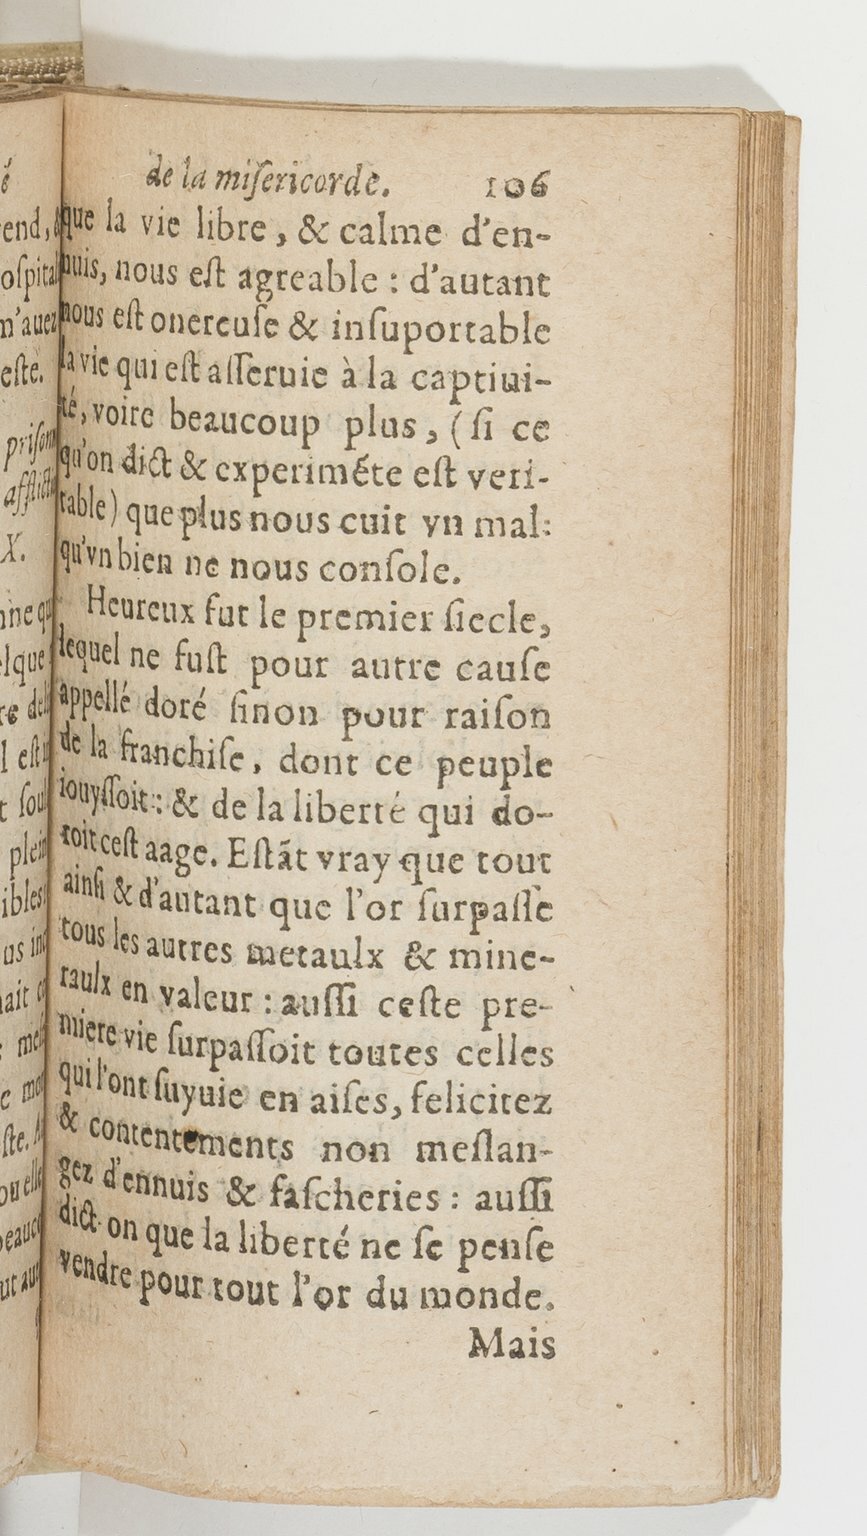 de la miſericorde. 106
que la vie libre, & calme d'en-
nuis, nous eſt agreable : d'autant
nous eſt onereuſe & inſuportable
la vie qui eſt aſſeruie à la captiui-
té, voire beaucoup plus, (ſi ce
qu'on dict & experiméte eſt veri-
table) que plus nous cuit vn mal:
qu'vn bien ne nous conſole.
Heureux fut le premier ſiecle,
lequel ne fuſt pour autre cauſe
appellé doré ſinon pour raiſon
de la franchiſe, dont ce peuple
iouyſſoit : & de la liberté qui do-
roit ceſt aage. Eſtãt vray que tout
ainſi & d'autant que l'or ſurpaſſe
tous les autres metaulx & mine-
raulx en valeur : auſſi ceſte pre-
miere vie ſurpaſſoit toutes celles
qui l'ont ſuyuie en aiſes, felicitez
& contentements non meſlan-
gez d'ennuis & faſcheries : auſſi
dict on que la liberté ne ſe penſe
vendre pour tout l'or du monde.
Mais